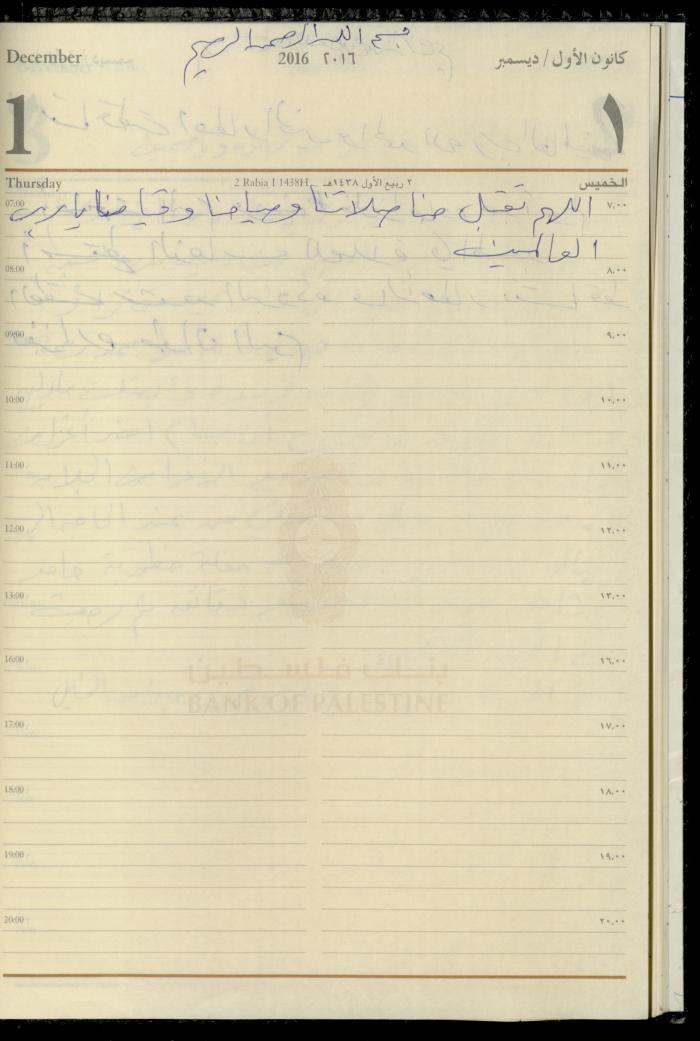 بسم الله الرحمن الرحيم
December 2016 ٢٠١٦ كانون الأول/ ديسمبر
1 ١
Thursday 2 Rabia I 1438H ٢ ربيع الأول ١٤٣٨هـ الخميس
07:00 اللهم تقبل منا صلاتنا وصيامنا وقيامنا يا رب ٧,٠٠
العالمين
08:00 ٨,٠٠
09:00 ٩,٠٠
10:00 ١٠,٠٠
11:00 ١١,٠٠
12:00 ١٢,٠٠
13:00 ١٣,٠٠
16:00 ١٦,٠٠
بنك فلسطين
BANK OF PALESTINE
17:00 ١٧,٠٠
18:00 ١٨,٠٠
19:00 ١٩,٠٠
20:00 ٢٠,٠٠